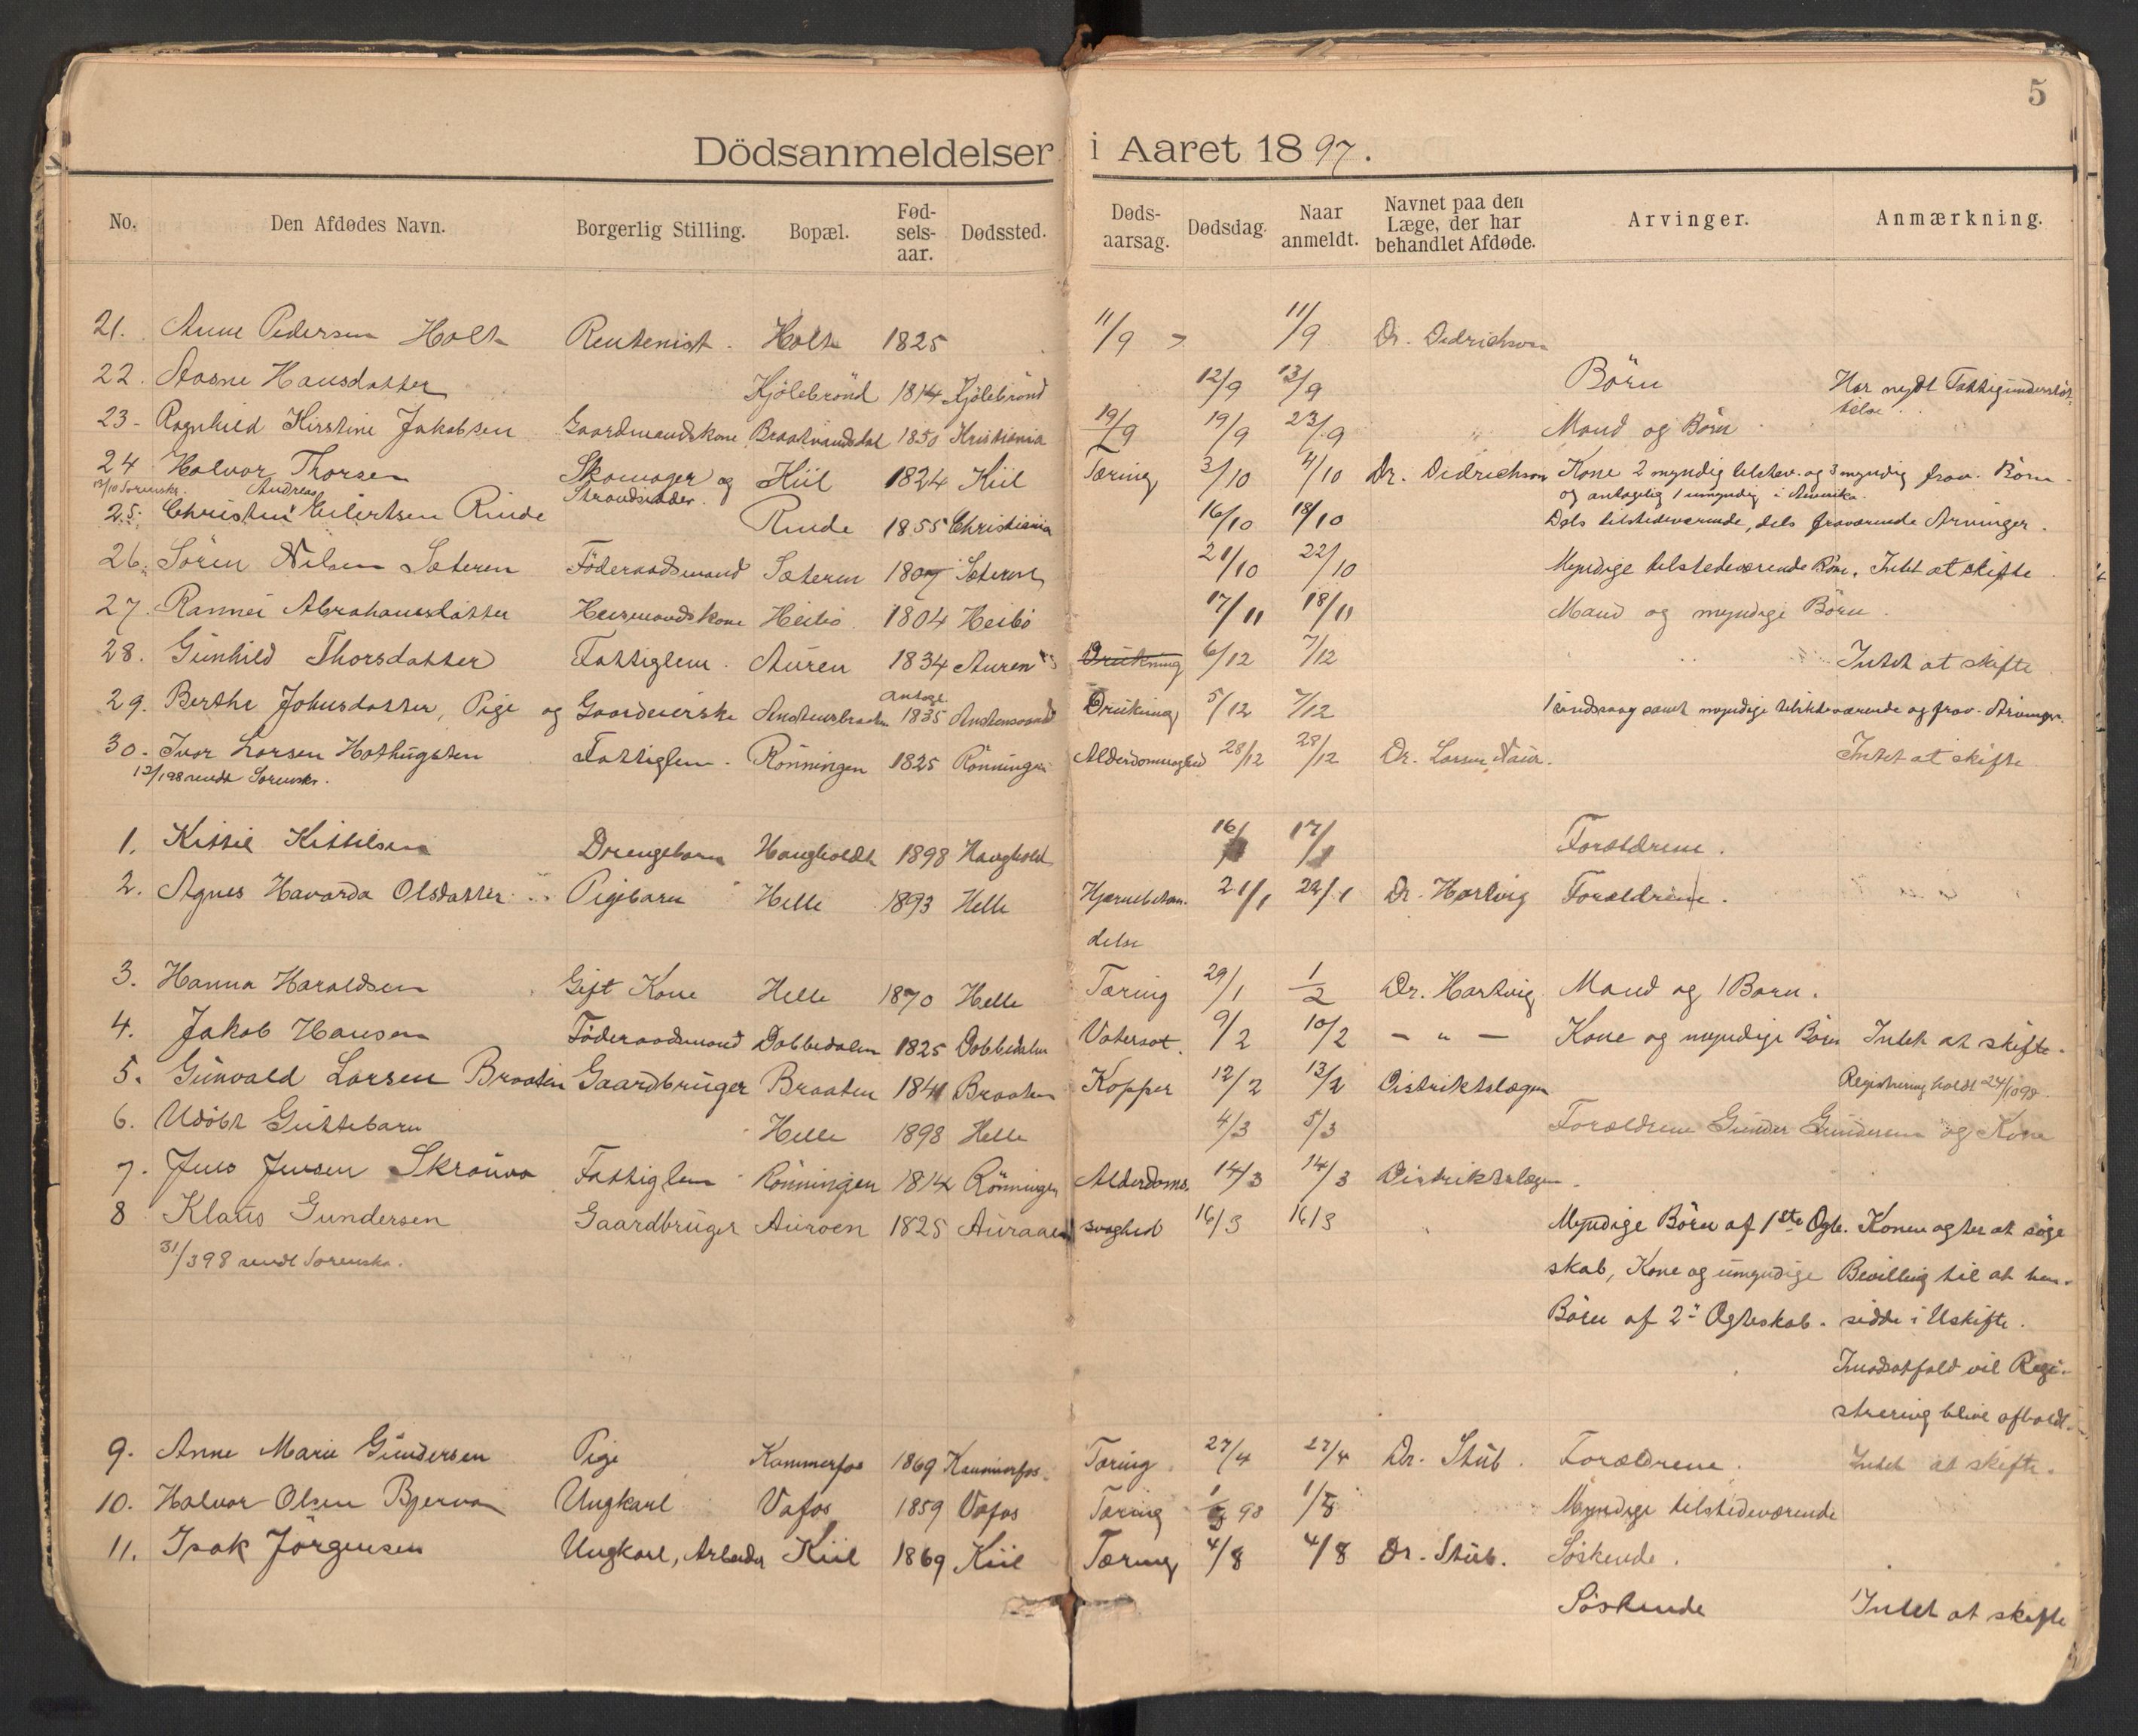 5
Dödsanmeldelser i Aaret 1897.
No. Den Afdødes Navn. Borgerlig Stilling. Bopæl. Fød-sels-aar. Dødssted. Døds-aarsag. Dødsdag. Naar anmeldt. Navnet paa den Læge, der har behandlet Afdøde. Arvinger. Anmærkning.
21. Anne Pedersen Holt Rentenist. Holt 1825 11/9 11/9 Dr. Didrichson
22. Aasne Hansdatter Kjölebrönd 1814 Kjölebrönd 12/9 13/9 Börn Har nydt Fattigunderstöt-
telse.
23. Ragnhild Kirstine Jakobsen Gaardmandskone Braatvandsdal 1850 Kristiania 19/9 19/9 23/9 Mand og Börn
24 Halvor Thorsen Skomager og Kiil 1824 Kiil Tæring 3/10 4/10 Dr. Didrichson Kone 2 myndig tilstev. og 3 myndig frav. Börn
13/10 Sorenskr. Andreas Strandsidder. og antagelig 1 umyndig i Amerika.
25. Christen Eilertsen Rinde Rinde 1855 Christiania 16/10 18/10 Dels tilstedeværende, dels fraværende Arvinger.
26. Sören Nilsen Sæteren Föderaadsmand Sæteren 1807 Sæteren 21/10 22/10 Myndige tilstedeværende Börn. Intet at skifte.
27. Rannei Abrahamsdatter Husmandskone Heibö 1804 Heibö 17/11 18/11 Mand og myndige Börn.
28. Gunhild Thorsdatter Fattiglem. Auren 1834 Auren Drukning 6/12 7/12 Intet at skifte
antagl.
29. Berthe Johnsdatter, Pige og Gaardeierske 1835 Drukning 5/12 7/12 samt myndige tilstedeværende og frav. Arvinger.
30. Ivar Larsen Hothugsten Fattiglem. Rönningen 1825 Rönningen Alderdomssvaghed 28/12 28/12 Dr. Larsen Intet at skifte
12/1 98 sendt Sorenskr.
1. Kittil Kittilsen Drengebarn Haugholdt 1898 Haughold 16/1 17/1 Forældrene.
2. Agnes Havarda Olsdatter Pigebarn Helle 1893 Helle Hjernebetæn- 21/1 22/1 Dr. Hartvig Forældrene.
delse
3. Hanna Haraldsen Gift Kone Helle 1870 Helle Tæring 29/1 1/2 Dr. Hartvig Mand og 1 Barn.
4. Jakob Hansen Föderaadsmand Dobbedalen 1825 Dobbedalen Vatersot. 9/2 10/2 - " - Kone og myndige Börn Intet at skifte.
5. Gunvald Larsen Braaten Gaardbruger Braaten 1841 Braaten Kopper 12/2 13/2 Distriktslægen Registrering holdt 24/10 98.
6. Udöbt Guttebarn Helle 1898 Helle 4/3 5/3 Forældrene Gunder Gundersen og Kone
7. Jens Jensen Skrauva Fattiglem Rönningen 1814 Rönningen Alderdoms. 14/3 14/3 Distriktslægen.
8 Klaus Gundersen Gaardbruger Auroen 1825 Auraaen svaghed 16/3 16/3 Myndige Börn af 1ste Ægte. Konen agter at söge
31/3 98 sendt Sorenskr. skab, Kone og umyndige Bevilling til at hen-
Börn af 2" Ægteskab. sidde i Uskifte.
Imodsatfald vil Regi-
strering blive afholdt.
9. Anne Marie Gundersen Pige Kammerfos 1869 Kammerfos. Tæring. 27/4 27/4 Dr. Stub. Forældrene. Intet at skifte.
10. Halvor Olsen Bjerva Ungkarl Vafos 1859 Vafos Tæring 98 Myndige tilstedeværende
11. Isak Jörgensen Ungkarl, Arbeider Kiil 1869 Kiil Tæring 4/8 4/8 Dr. Stub. Söskende.
Söskende Intet at skifte